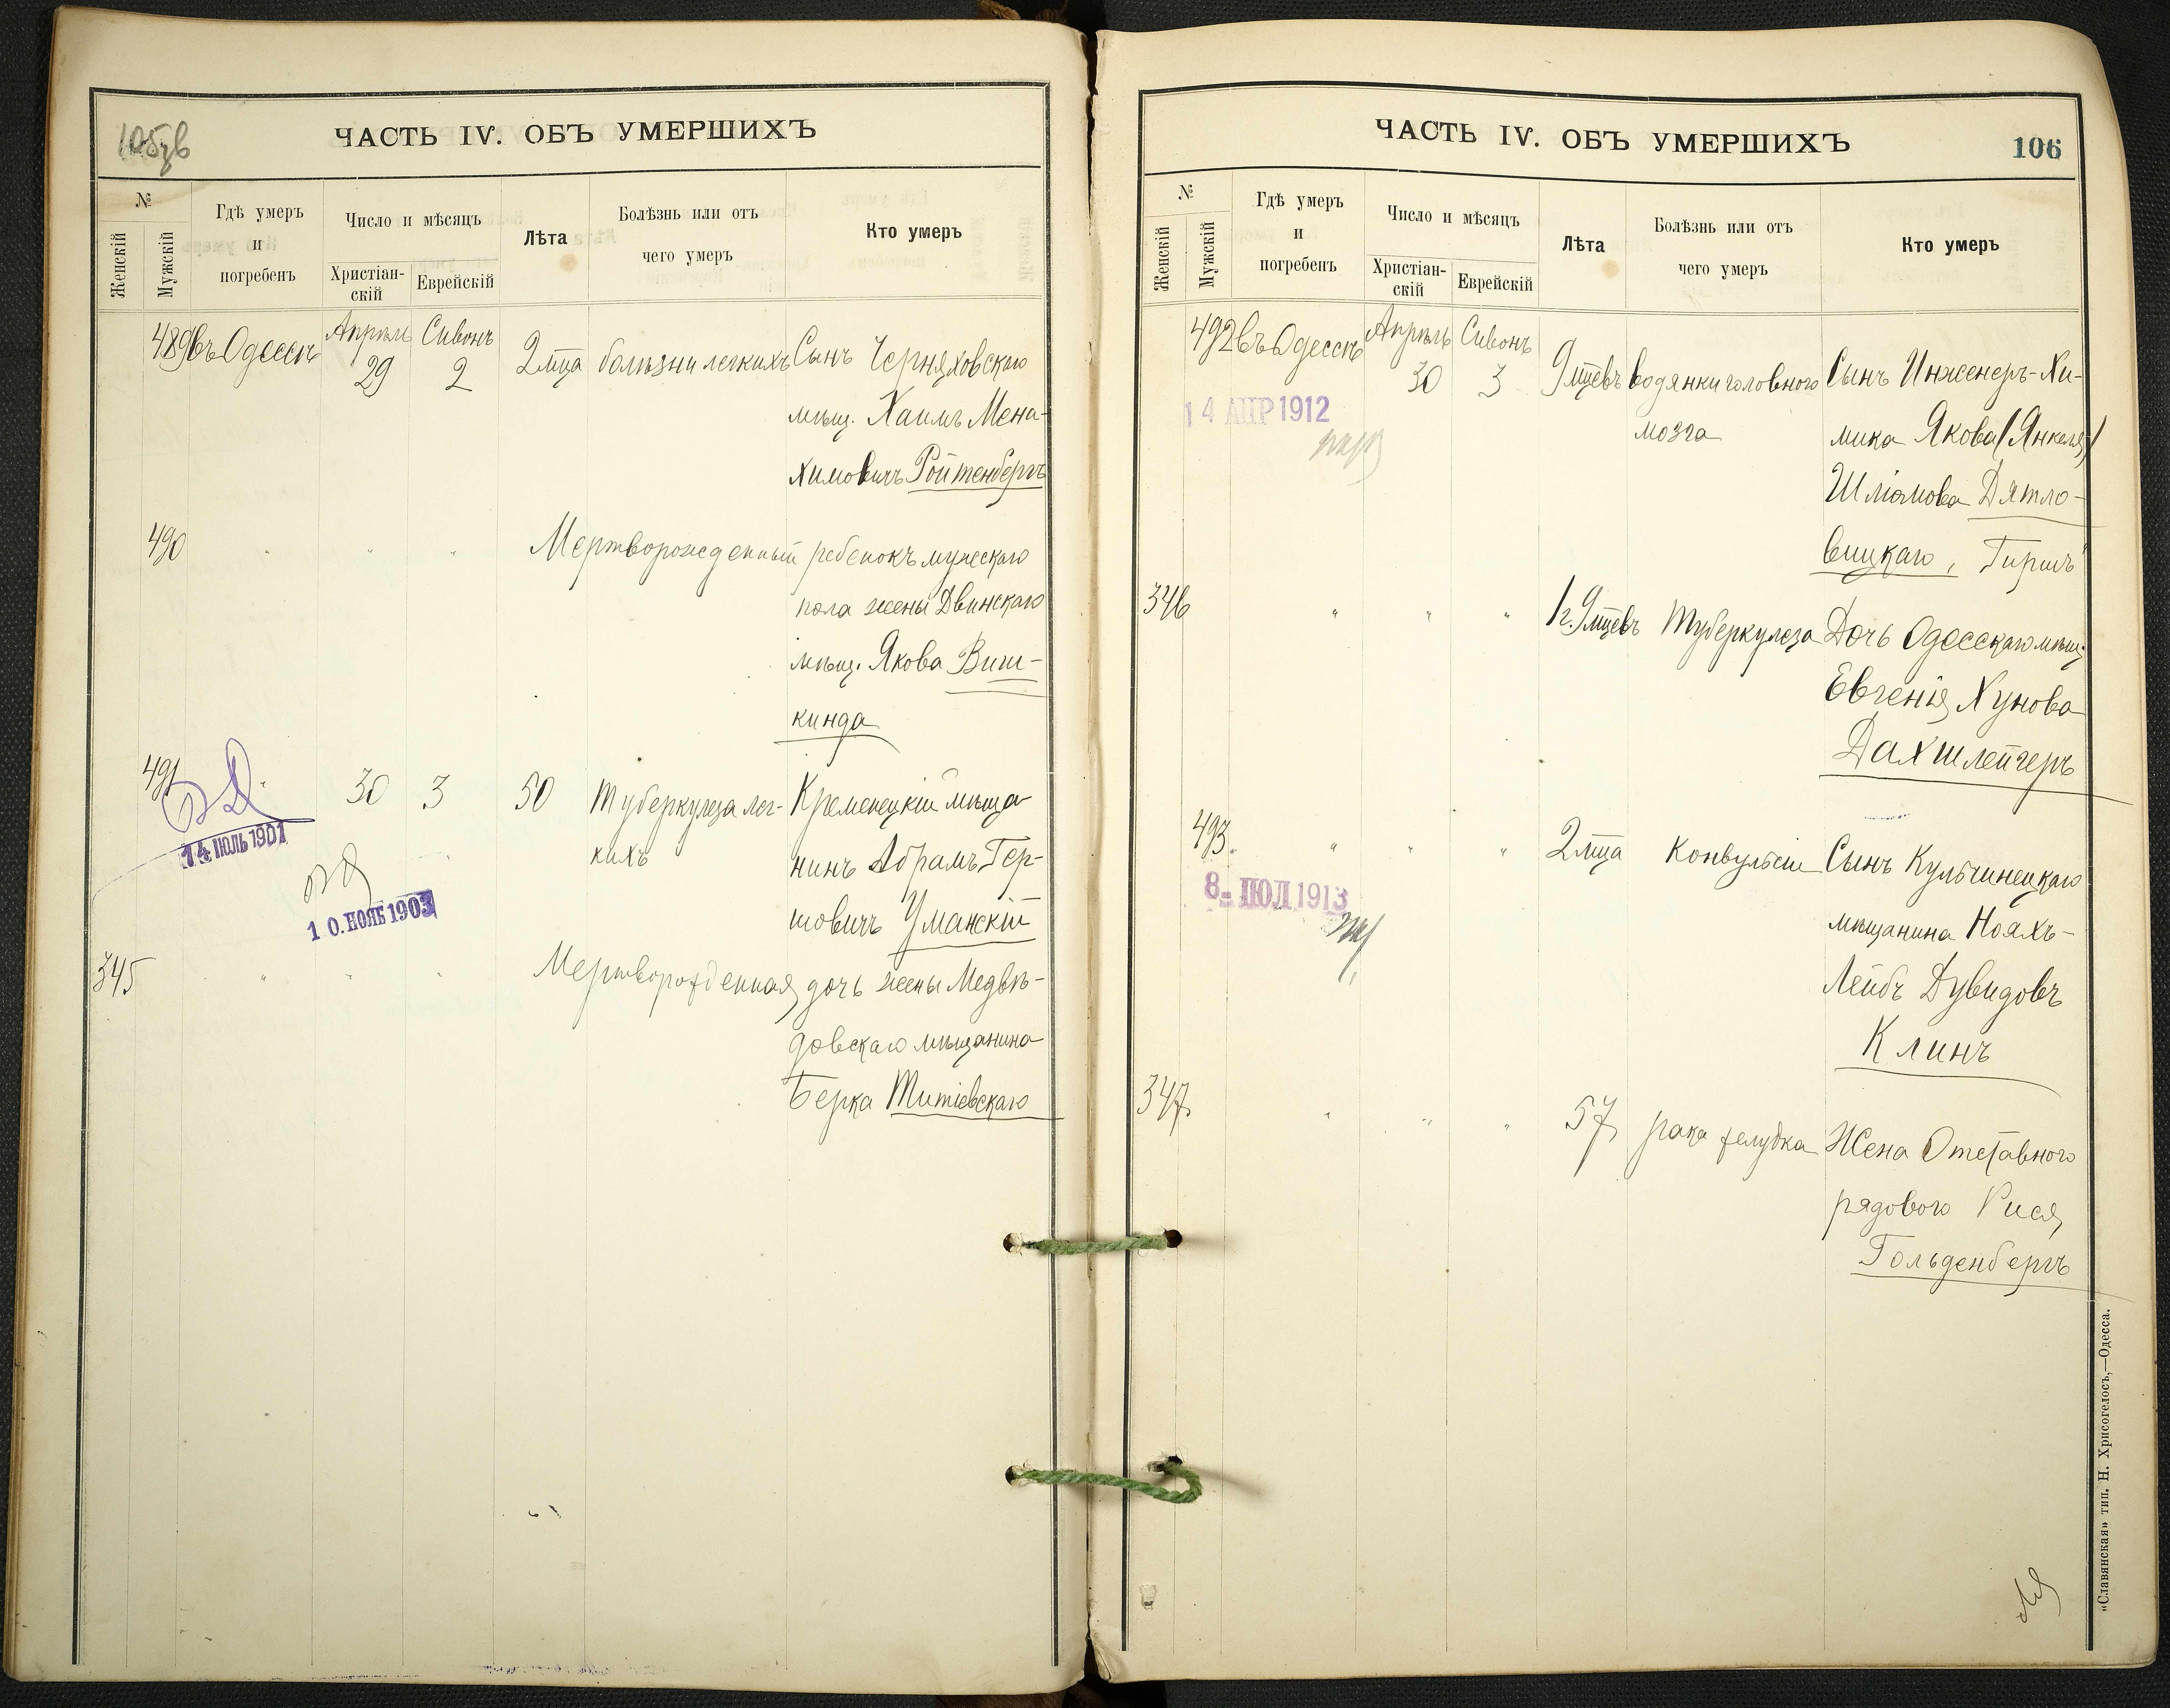 105 зв
ЧАСТЬ IV. ОБЪ УМЕРШИХЪ
№
Женскій
Мужскій
Гдѣ умеръ
и
погребенъ
Число и мѣсяцъ
Христіан-
скій
Еврейскій
Лѣта
Болѣзнь или отъ
чего умеръ
Кто умеръ
489 въ Одессѣ Апрѣль 29 Сивонъ 2 2 мца болѣзни легкихъ Сынъ Черняховскаго
мѣщ. Хаимъ Мена-
химовичъ Ройтенбергъ
490 " " " Мертворожденный ребенокъ мужескаго
пола жены Двинскаго
мѣщ. Якова Виш-
кинда
491 " 30 3 50 Туберкулеза лег- Кременецкій мѣща-
кихъ нинъ Абрамъ Гер-
шовичъ Уманскій
14 ІЮЛЬ 1901
10. НОЯБ 1903
345 " " " Мертворожденная дочь жены Медвѣ-
довскаго мѣщанина
Берка Титіевскаго
ЧАСТЬ IV. ОБЪ УМЕРШИХЪ
106
№
Женскій
Мужскій
Гдѣ умеръ
и
погребенъ
Число и мѣсяцъ
Христіан-
скій
Еврейскій
Лѣта
Болѣзнь или отъ
чего умеръ
Кто умеръ
492 въ Одессѣ Апрѣль 30 Сивонъ 3 9 мцевъ водянки головного Сынъ Инженеръ-Хи-
мозга мика Якова (Янкеля)
Шліомова Дятло-
вицкаго, Гиршъ
14 АПР 1912
346 " " " 1 г. 9 мцевъ Туберкулеза Дочь Одесскаго мѣщ.
Евгенія Хунова
Дахшлейгеръ
493 " " " 2 мца Конвульсіи Сынъ Кульчинецкаго
мѣщанина Нояхъ-
Лейбъ Дувидовъ
Клинъ
8- ІЮЛ 1913
347 " " " 57 рака желудка Жена Отставного
рядового Рися
Гольденбергъ
«Славянская» тип. Н. Хрисогелосъ,—Одесса.